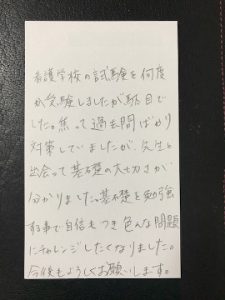 看護学校の試験を何度
か受験しましたが駄目で
した。焦って過去問ばかり
対策していましたが、先生と
出会って基礎の大切さが
分かりました。基礎を勉強
する事で自信もつき色んな問題
にチャレンジしたくなりました。
今後もよろしくお願いします。